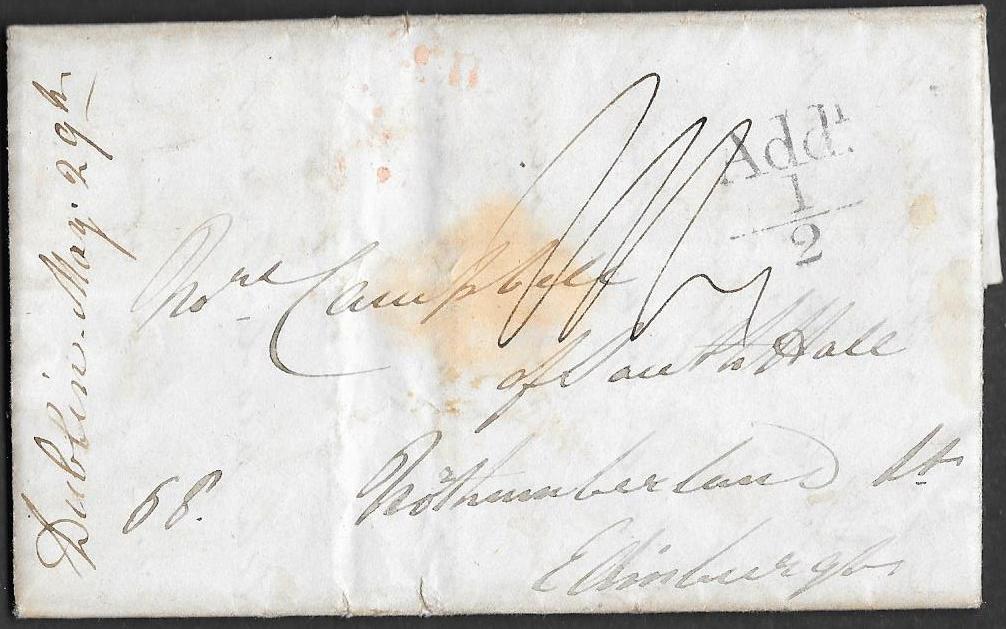 Dublin. May. 29th
Addl.
1
2
Campbell
of South Hall
68. Northumberland St
Edinburgh